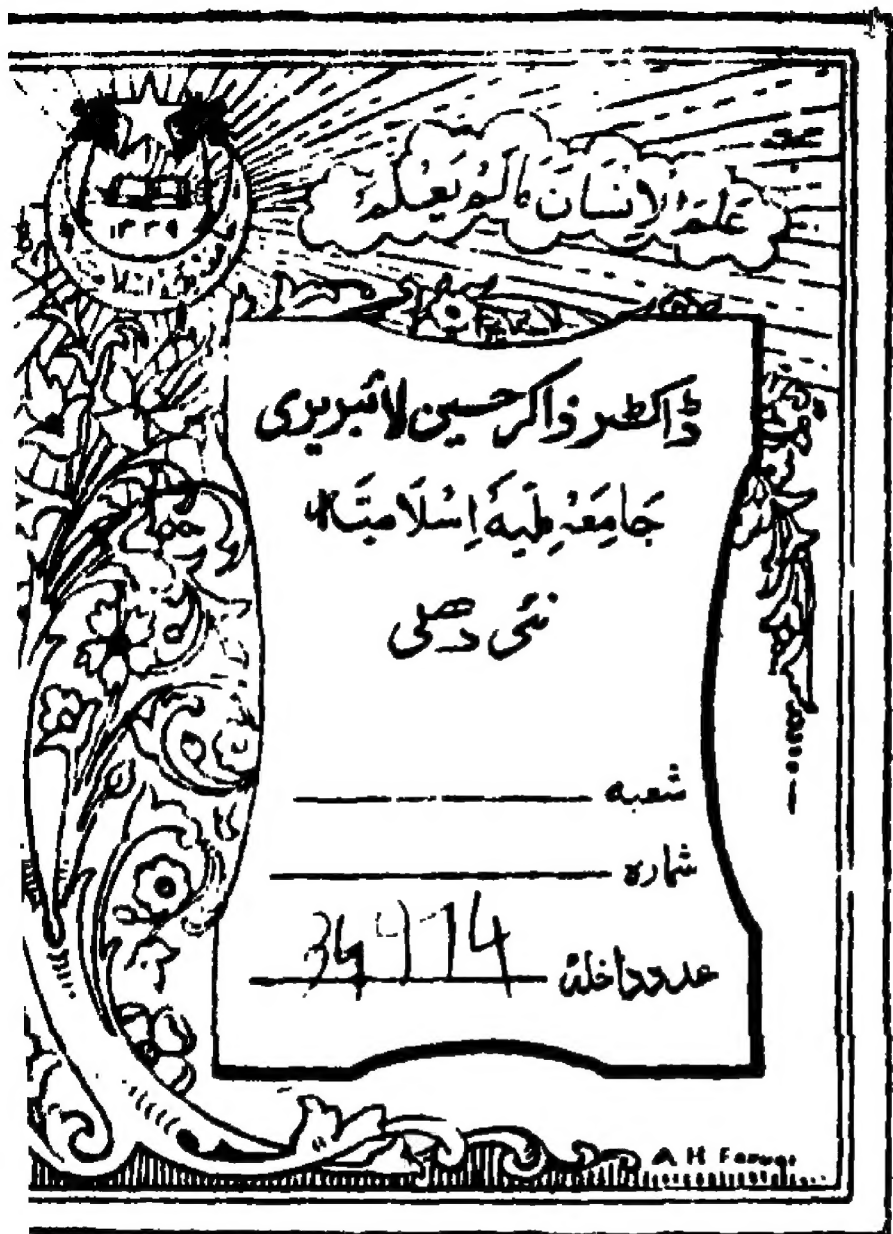 عَلَّمَ الْاِنْسَانَ مَالَمْ يَعْلَمْ
۱۳۳۹
ڈاکٹر ذاکر حسین لائبریری
جَامِعَہ مِلّیَہ اِسْلَامیَہ
نئی دھلی
شعبہ
شمارہ
عدد داخلہ
A H Faruqi